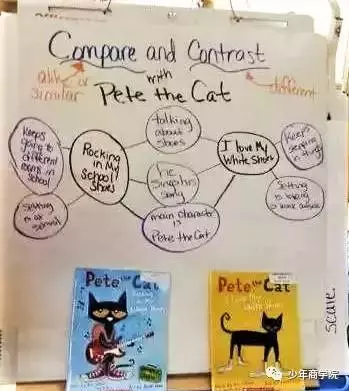 Compare and Contrast
alike or
similar
with
different
Pete the Cat
talking
about
shoes
Keeps
going to
different
rooms in
school
Rocking
in My
School
Shoes
I love My
White Shoes
Keeps
stepping
in things
he
sings his
song
setting
is at
school
Setting
is
main character
is
Pete the Cat
scare.
Pete the Cat
Rocking
in My
School Shoes
Pete the Cat
I Love My
White Shoes
少年商学院